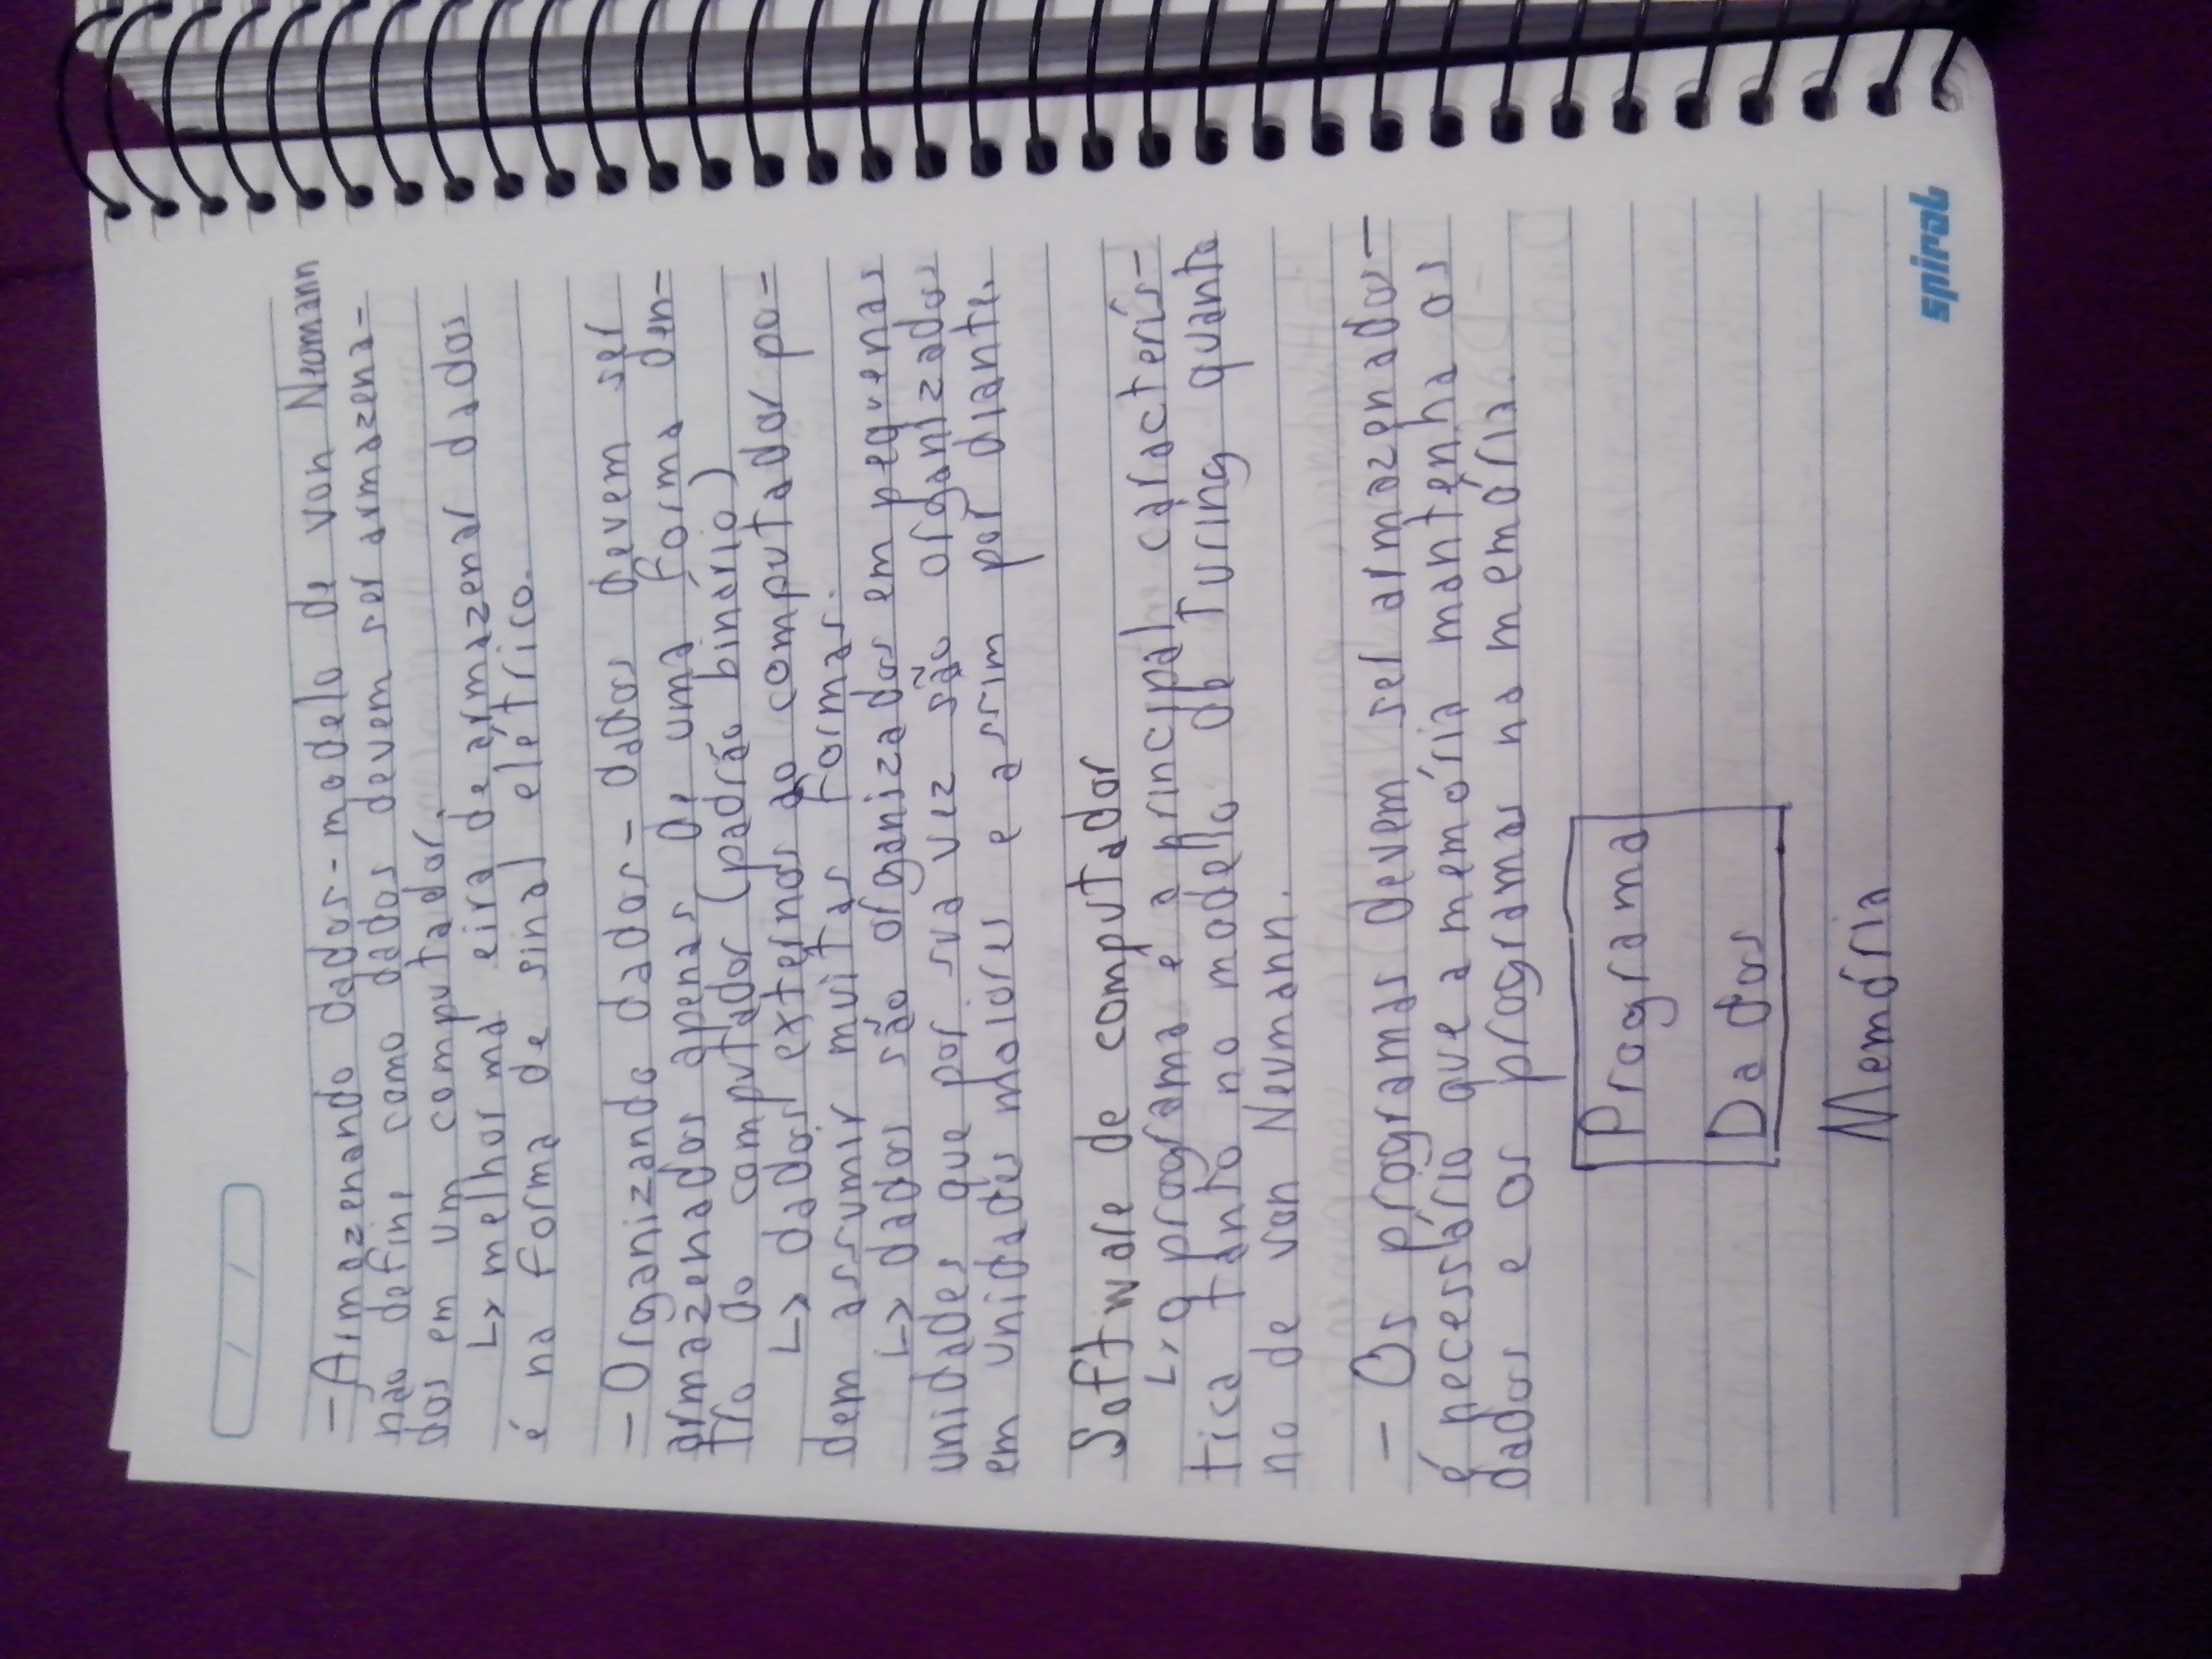 - Armazenando dados - modelo de von Neumann
não define como dados devem ser armazena-
dos em um computador.
↳ melhor ma eira de armazenar dados
é na forma de sinal elétrico.
- Organizando dados - dados devem ser
armazenados apenas de uma forma den-
tro do computador (padrão binário)
↳ dados externos ao computador po-
dem assumir muitas formas.
↳ dados são organizados em pequenas
unidades que por sua vez são organizados
em unidades maiores e assim por diante.
Software de computador
↳ o programa é a principal caracterís-
tica tanto no modelo de Turing quanto
no de von Neumann.
- Os programas devem ser armazenados -
é necessário que a memória mantenha os
dados e os programas na memória.
Programa
Dados
Memória
spiral